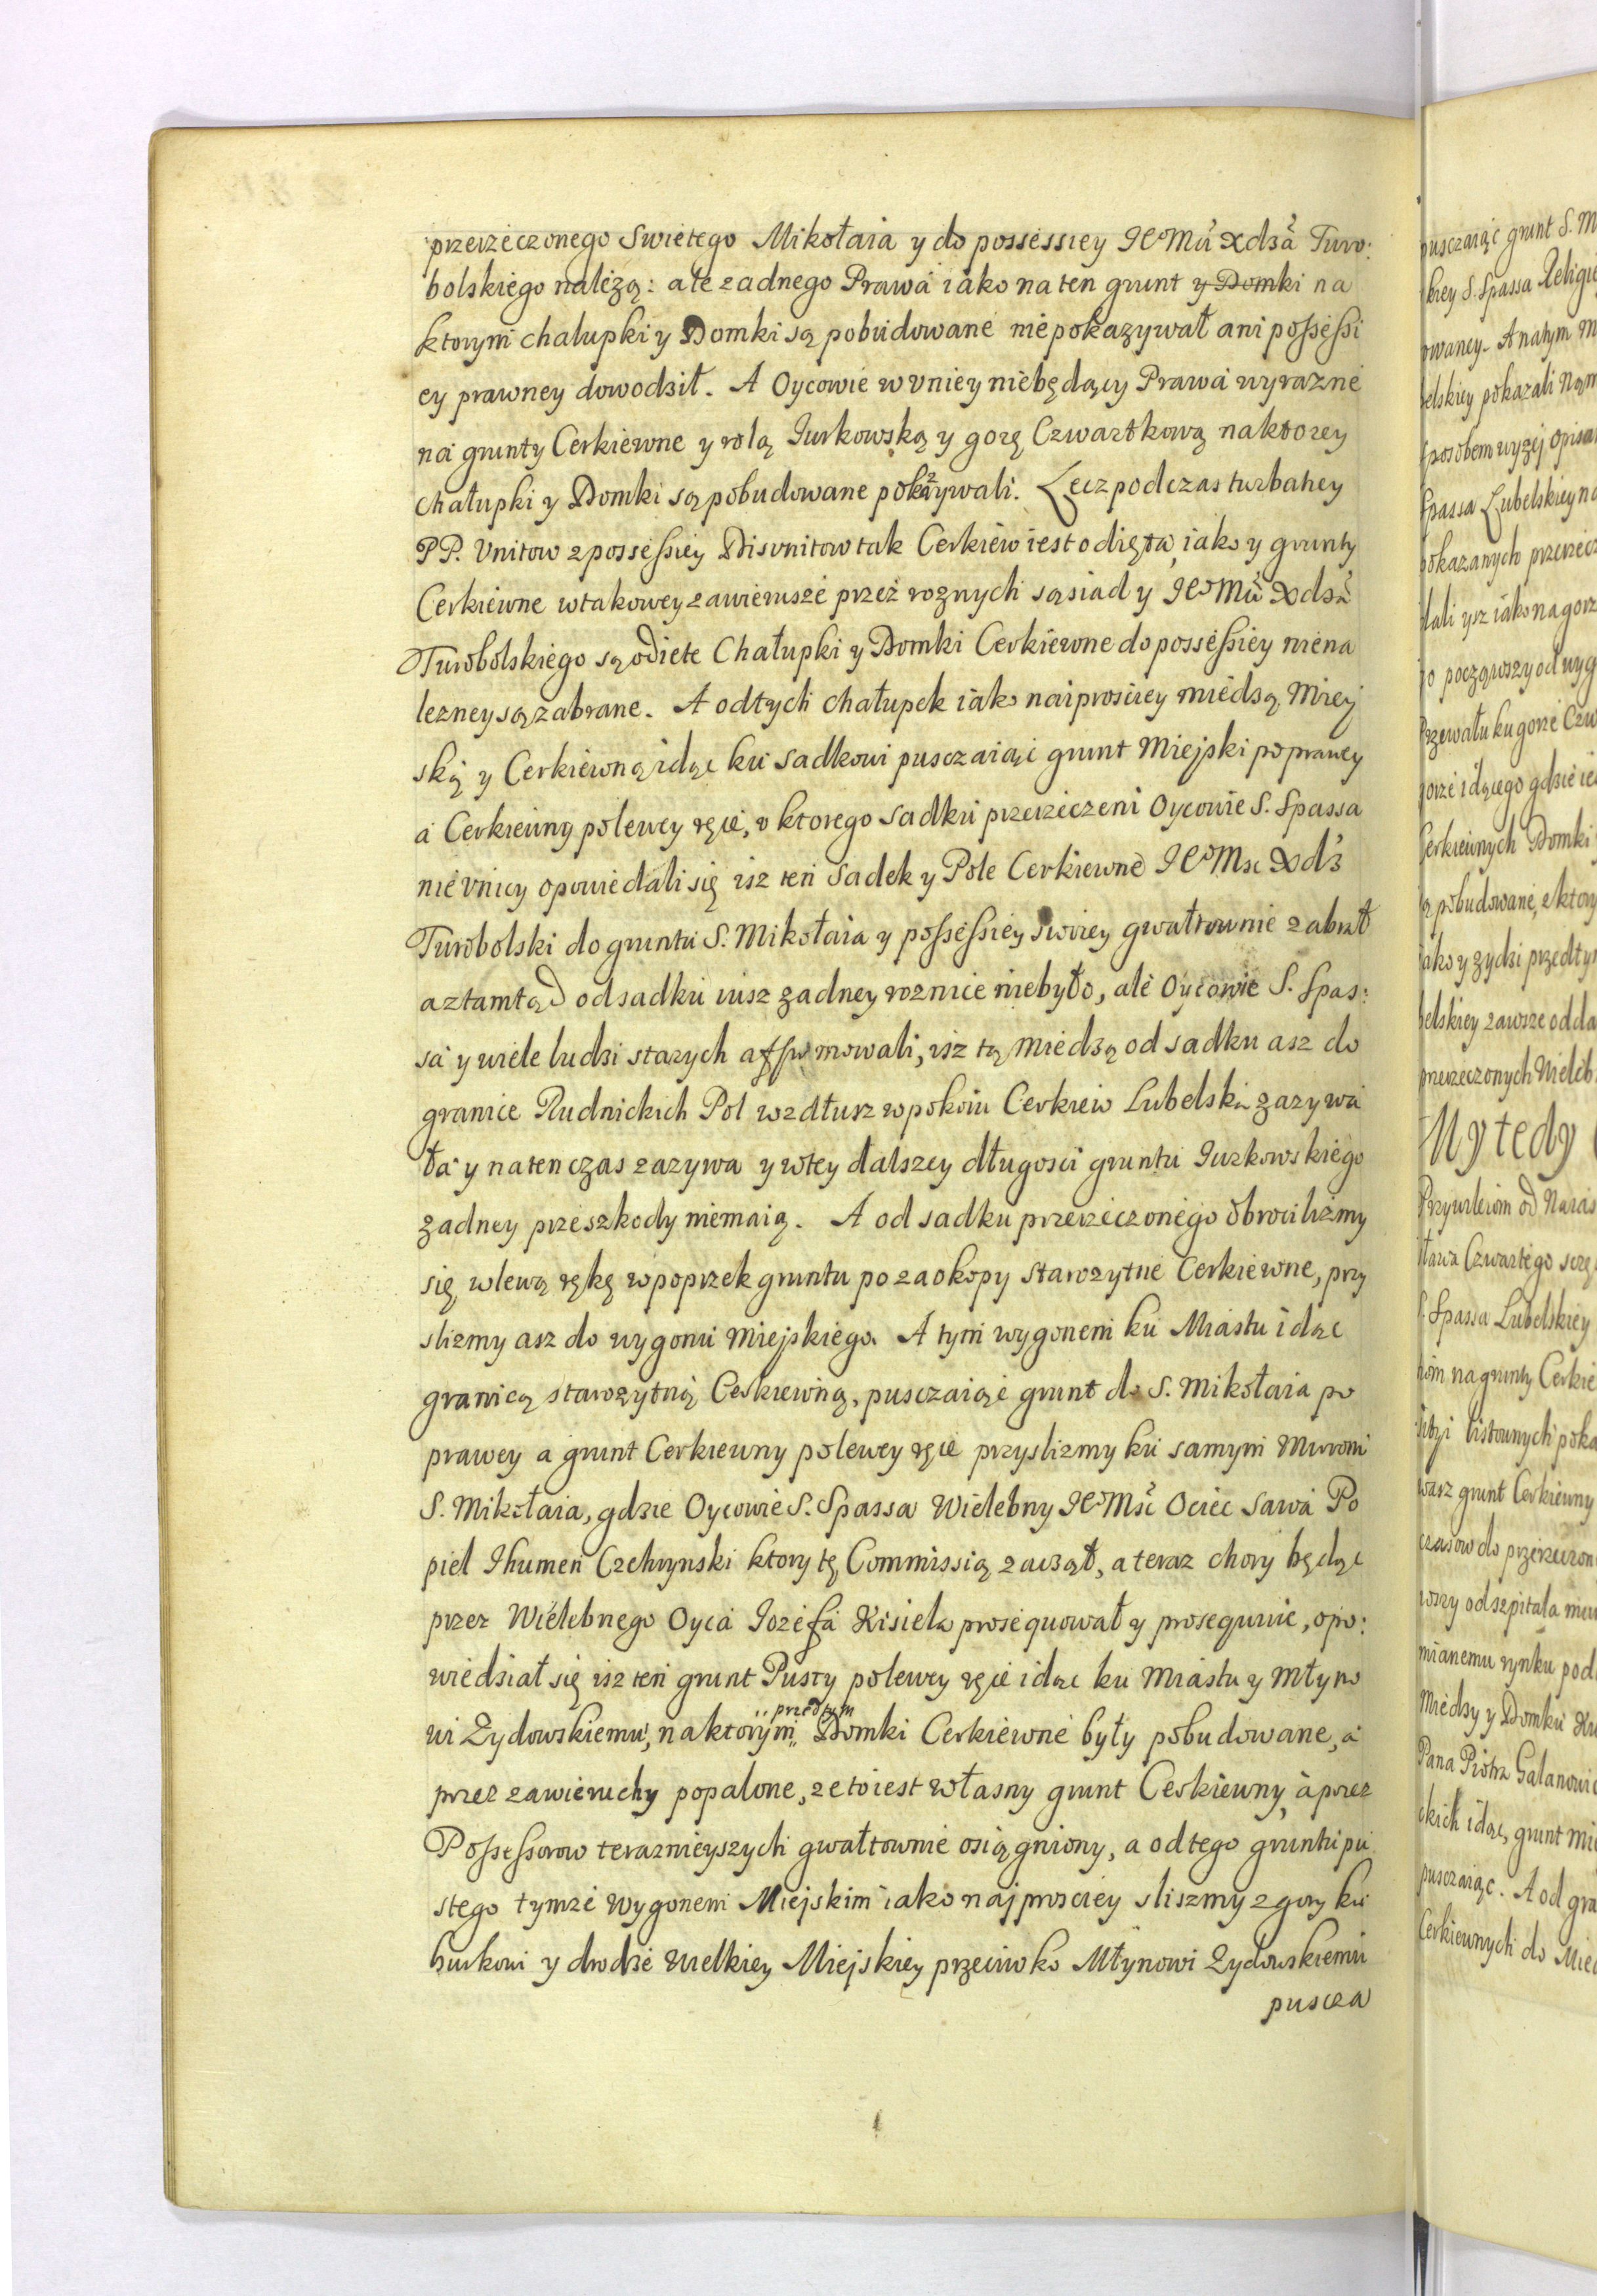 przerzeczonego Swietego Mikołaia y do possessiey JEoMci Xdza Turo:
bolskiego należą: ale zadnego Prawa iako na ten grunt y Domki na
ktorym chalupki y Domki są pobudowane niepokazywał ani possessi
ey prawney dowodził. A Oycowie w Vniey niebędący Prawa wyrazne
na grunty Cerkiewne y rolą Jurkowską y gorę Czwartkową naktorey
chałupki y Domki są pobudowane pokazywali. Lecz podczas turbatiey
PP. Vnitow z possessiey Disvnitow tak Cerkiew iest odięta, iako y grunty
Cerkiewne wtakowey zawierusze przez roznych sąsiad y JEoMci Xdza
Turobolskiego są odiete Chałupki y Domki Cerkiewne do possessiey niena
lezney są zabrane. A odtych chałupek iako naiprosciey miedzą Miey
ską y Cerkiewną idąc ku sadkowi pusczaiąc grunt Miejski po prawey
a Cerkiewny polewey ręce, v ktorego sadku przerzeczeni Oycowie S. Spassa
nie vnicy opowiedali się isz ten Sadek y Pole Cerkiewne JEoMsc Xdz
Turobolski do gruntu S. Mikołaia y possessiey swoiey gwałtownie zabrał
a ztamtąd od sadku iusz zadney roznice niebyło, ale Oycowie S. Spas:
sa y wiele ludzi starych affirmowali, isz tą miedzą od sadku asz do
granice Rudnickich Pol wzdłusz wpokoiu Cerkiew Lubelska zazywa
ła y na ten czas zazywa y wtey dalszey długosci gruntu Jurkowskiego
zadney przeszkody niemaią. A od sadku przerzeczonego obrocilizmy
się wlewą rękę wpoprzek gruntu po zaokopy starozytne Cerkiewne, przy
slizmy asz do wygonu Miejskiego. A tym wygonem ku Miastu idąc
granicą starozytną Cerkiewną, pusczaiąc grunt do S. Mikołaia po
prawey a grunt Cerkiewny polewey ręce przyslizmy ku samym Murom
S. Mikołaia, gdzie Oycowie S. Spassa Wielebny JEoMsc Ociec Sawa Po
piel Ihumen Czehrynski ktory tę Commissią zaczął, a teraz chory będąc
przez Wielebnego Oyca Jozefa Kisiela prosequował y prosequuie, opo:
wiedział się isz ten grunt Pusty polewey ręce idąc ku Miastu y Młyno
wi Zydowskiemu, naktorym przedtym Domki Cerkiewne były pobudowane, a
przez zawieruchy popalone, ze to iest własny grunt Cerkiewny, a przez
Possessorow teraznieyszych gwałtownie osiągniony, a odtego gruntu pu
stego tymze wygonem Miejskim iako najprosciey sliszmy z gory ku
burkowi y drodze wielkiey Miejskiey przeciwko Młynowi Zydowskiemu
puscza
pusczaiąc grunt S. M
kiey S. Spassa Religie
owaney. A natym m
belskiey pokazali nam
sposobem wyzej opisa
Spassa Lubelskiey na
pokazanych przerzecz
dali ysz iako na gorz
o począwszy od wyg
Przewału ku gorze Czw
gorze idącego gdzie ie
Cerkiewnych Domki
ą pobudowane, z ktory
iako y zydzi przedtym
belskiey zawsze odda
przerzeczonych Wieleb
My tedy
Przywileiom od Naias
sława Czwartego sczę
S. Spassa Lubelskiey
nom na grunty Cerkie
listownych poka
grunt Cerkiewny
czasow do przerzeczon
odszpitala
mianemu rynku pod
Miedzy y Domku
Pana Piotra Galanowic
ckich idąc, grunt Mie
pusczaiąc. A od gra
Cerkiewnych do Mied